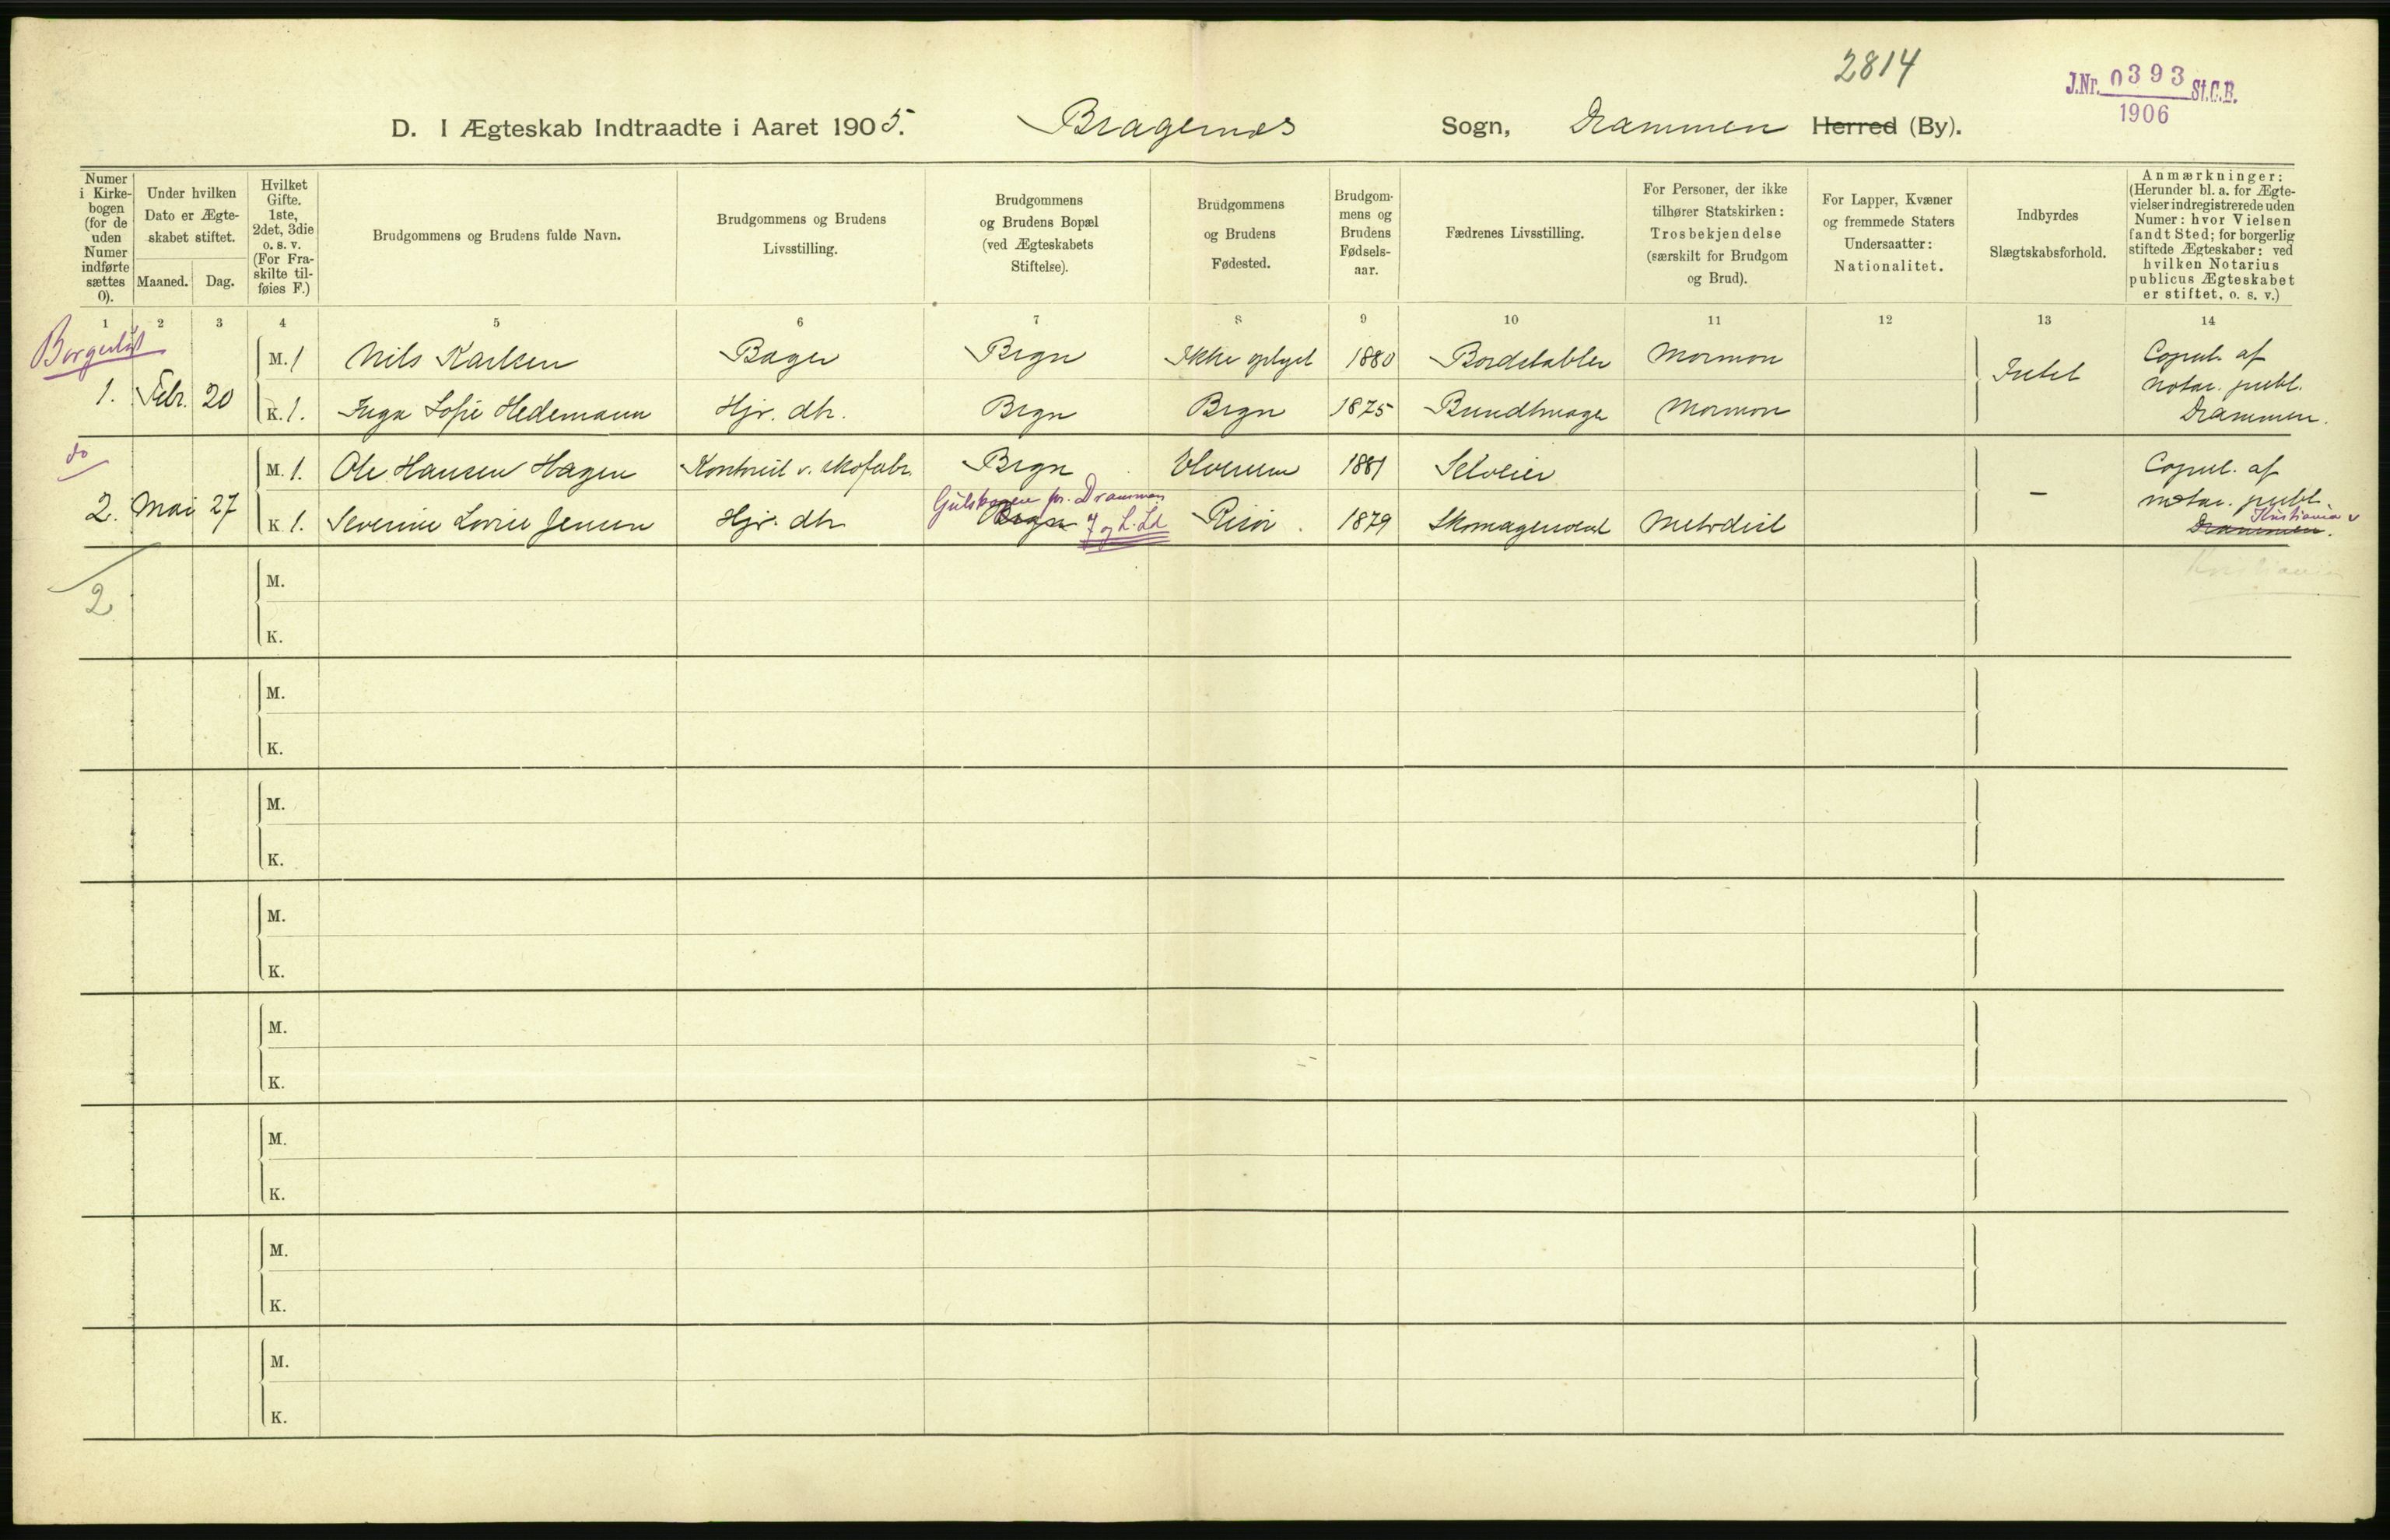 2814
J.Nr. 0393 St.C.B.
1906
D. I Ægteskab Indtraadte i Aaret 1905. Bragernes Sogn, Drammen Herred (By).
Numer i Kirke-bogen (for de uden Numer indførte sættes 0).
Under hvilken Dato er Ægte-skabet stiftet.
Maaned. Dag.
Hvilket Gifte. 1ste, 2det, 3die o. s. v. (For Fra-skilte til-føies F.)
Brudgommens og Brudens fulde Navn.
Brudgommens og Brudens Livsstilling.
Brudgommens og Brudens Bopæl (ved Ægteskabets Stiftelse).
Brudgommens og Brudens Fødested.
Brudgom-mens og Brudens Fødsels-aar.
Fædrenes Livsstilling.
For Personer, der ikke tilhører Statskirken: Trosbekjendelse (særskilt for Brudgom og Brud).
For Lapper, Kvæner og fremmede Staters Undersaatter: Nationalitet.
Indbyrdes Slægtskabsforhold.
Anmærkninger: (Herunder bl. a. for Ægte-vielser indregistrerede uden Numer: hvor Vielsen fandt Sted; for borgerlig stiftede Ægteskaber: ved hvilken Notarius publicus Ægteskabet er stiftet, o. s. v.)
1 2 3 4 5 6 7 8 9 10 11 12 13 14
Borgerligt
M. 1 Nils Karlsen Bager Brgn Ikke oplyst 1880 Bordstabler Mormon Copul. af
1. Febr. 20 Intet notar. publ.
K. 1. Inga Sofie Hedemann Hjr. dtr. Brgn Brgn 1875 Bundtmager Mormon Drammen.
do
M. 1. Ole Hansen Hagen Kontorist v. skofabr. Brgn Elverum 1881 Selveier Copul. af
2. Mai 27 Gulskogen pr. Drammen – notar. publ.
K 1. Severine Lovise Jensen Hjr. dtr Brgn J og L. Ld Risør. 1879 Skomagersvend Methodist Drammen. Kristiania v
Kristiania
2
M.
K.
M.
K.
M.
K.
M.
K.
M.
K.
M.
K.
M.
K.
M.
K.